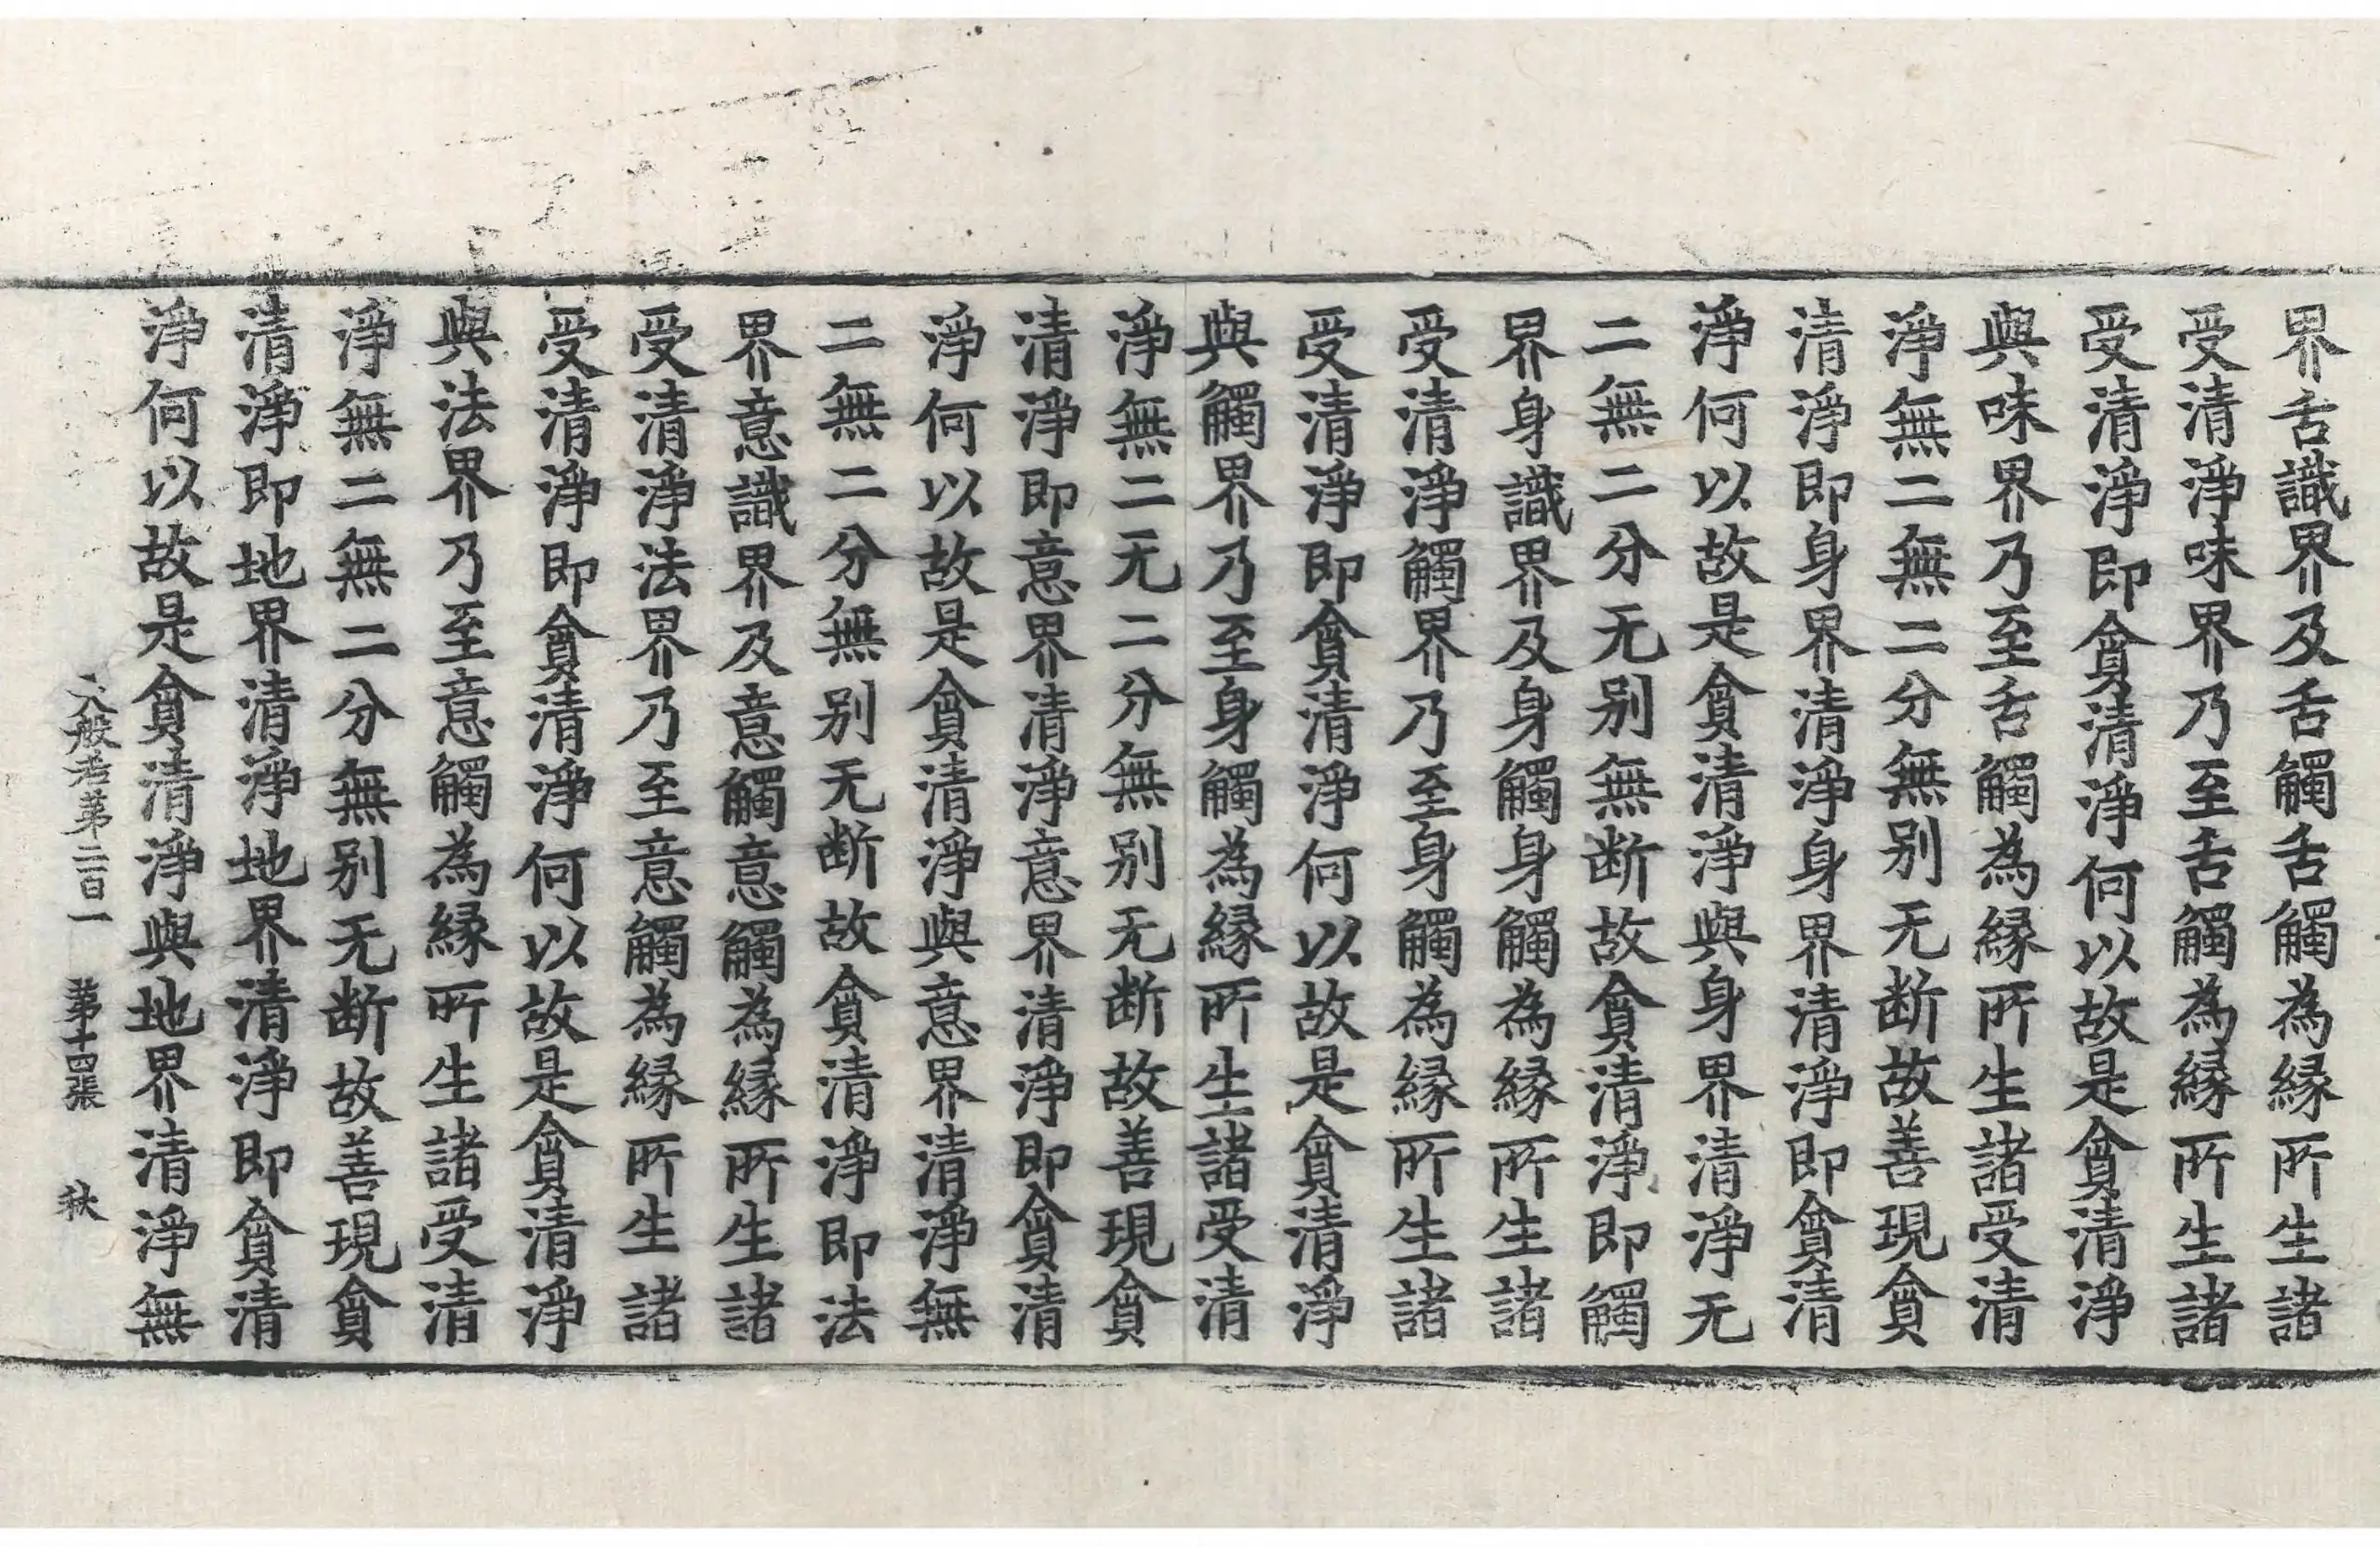 界舌識界及舌觸舌觸為縁所生諸
受清淨味界乃至舌觸為縁所生諸
受清淨即貪清淨何以故是貪清淨
與味界乃至舌觸為縁所生諸受清
淨無二無二分無别无断故善現貪
清淨即身界清淨身界清淨即貪清
淨何以故是貪清淨與身界清淨无
二無二分无别無断故貪清淨即觸
界身識界及身觸身觸為縁所生諸
受清淨觸界乃至身觸為縁所生諸
受清淨即貪清淨何以故是貪清淨
與觸界乃至身觸為縁所生諸受清
淨無二无二分無别无断故善現貪
清淨即意界清淨意界清淨即貪清
淨何以故是貪清淨與意界清淨無
二無二分無别无断故貪清淨即法
界意識界及意觸意觸為縁所生諸
受清淨法界乃至意觸為縁所生諸
受清淨即貪清淨何以故是貪清淨
與法界乃至意觸為縁所生諸受清
淨無二無二分無别无断故善現貪
清淨即地界清淨地界清淨即貪清
淨何以故是貪清淨與地界清淨無
大般若第二百一 第十四張 秋